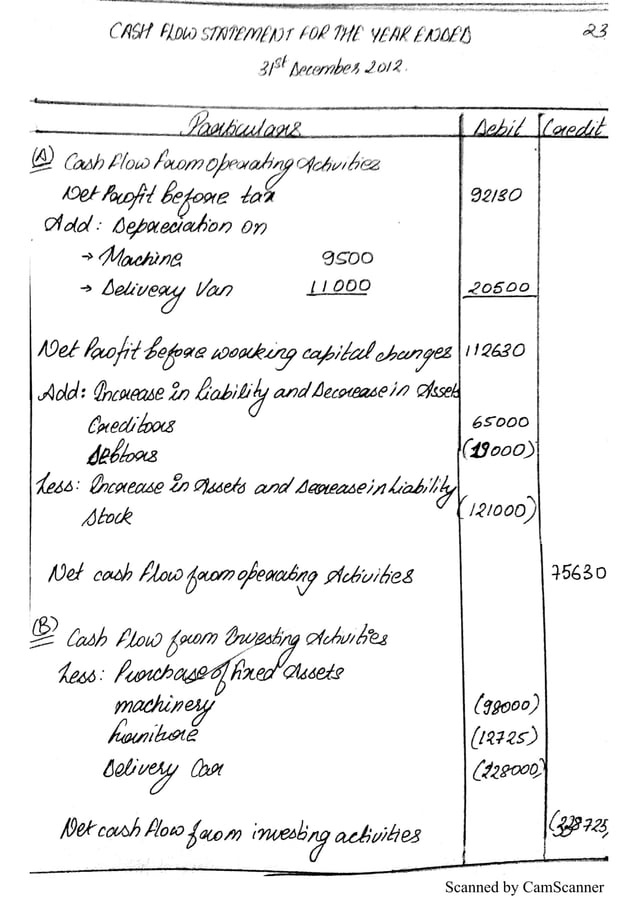 CASH FLOW STATEMENT FOR THE YEAR ENDED 23
31st December, 2012.
Particulars Debit Credit
(A) Cash flow from operating Activities
Net Profit before tax 92130
Add: Depreciation on
→ Machine 9500
→ Delivery Van 11000 20500
Net Profit before working capital changes 112630
Add: Increase in liability and Decrease in Assets
Creditors 65000
Debtors (19000)
Less: Increase in Assets and Decrease in Liability
Stock (121000)
Net cash flow from operating Activities 75630
(B) Cash flow from Investing Activities
Less: Purchase of fixed Assets
machinery (98000)
furniture (12725)
Delivery Car (228000)
Net cash flow from investing activities (338725,
Scanned by CamScanner